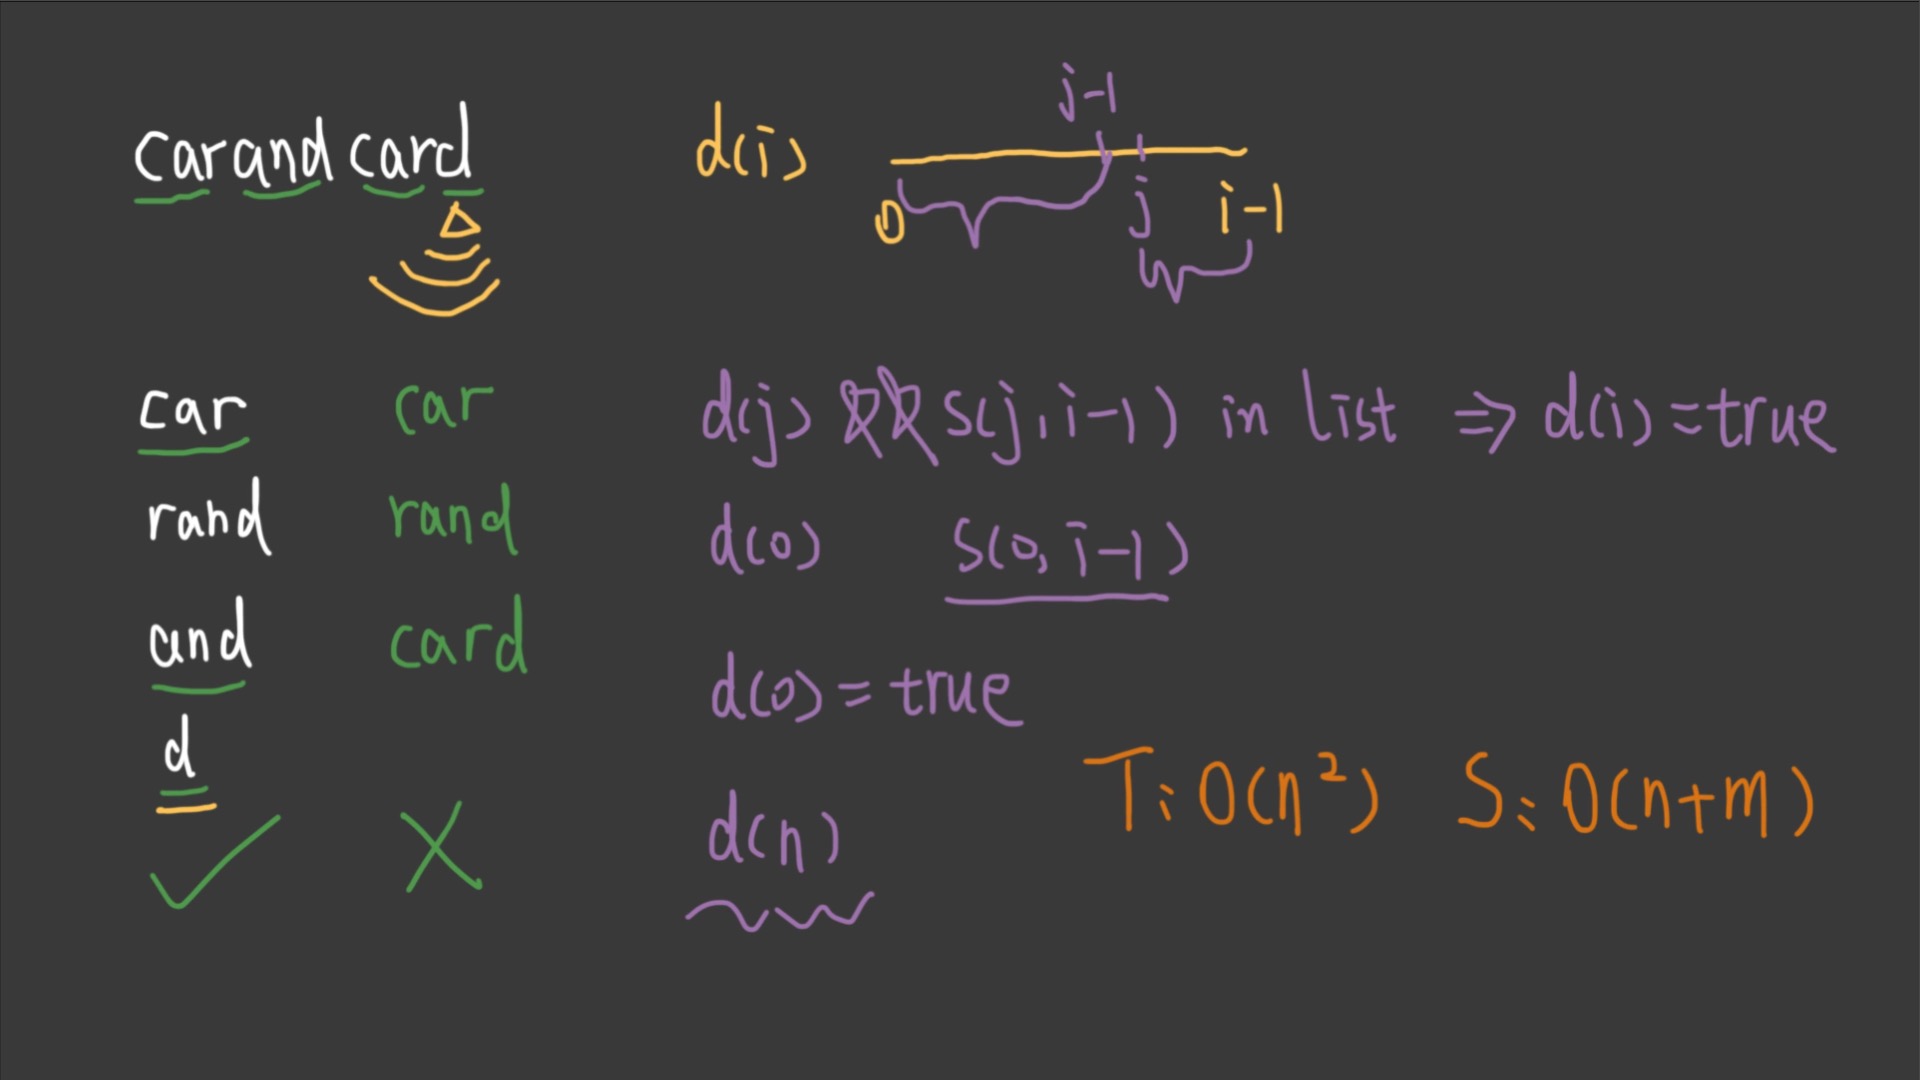 carandcard
car car
rand rand
and card
d
d(i)
j-1
0 j i-1
d(j) && s(j, i-1) in list ⇒ d(i)=true
d(0) s(0, i-1)
d(0)=true
d(n)
T: O(n²) S: O(n+m)